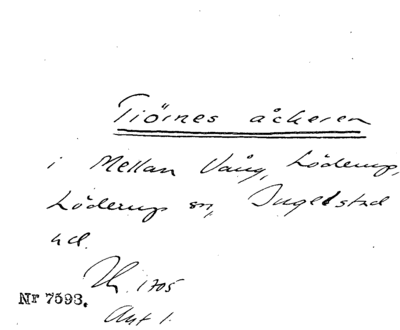 Tiörnes åckeren
i Mellan Vång, Löderup,
Löderup sn, Ingelstad
hd.
1705
Nr 7593.
Akt 1.